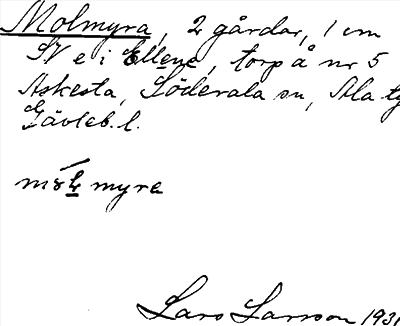 Molmyra, 2 gårdar, 1 cm
SV e i Ellene, torp å nr 5
Askesta, Söderala sn, Ala t
Gävleb. l.
myra
Lars Larsson 1931